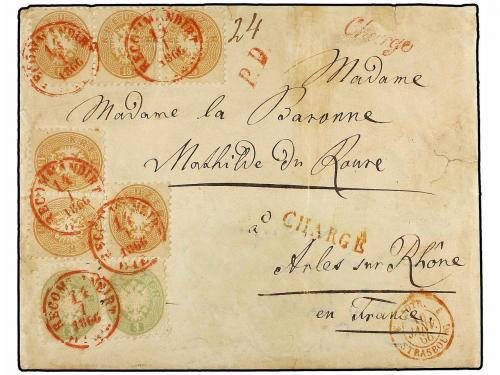 24
P.D.
Charge
Madame
Madame la Baronne
Mathilde du Roure
à
CHARGÉ
Arles sur Rhône
en France
RECOMMANDIRT
14
1866
RECOMMANDIRT
14
1866
RECOMMANDIRT
14
1866
RECOMMANDIRT
14
1866
RECOMMANDIRT
14
1866
JANV.
66
STRASBOURG